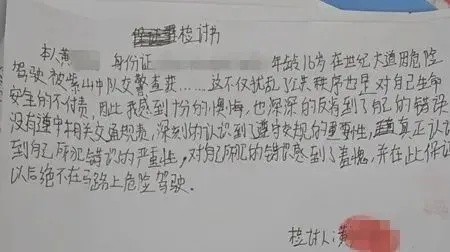 检讨书
本人黄 身份证 年龄16岁 在世纪大道因危险
驾驶被紫山中队交警查获……这不仅扰乱了公共秩序也是对自己生命
安全的不付责,因此我感到十分的懊悔,也深深的反省到了自己的错误
没有遵守相关交通规责,深刻的认识到了遵守交规的重要性,真正认识
到自己所犯错误的严重性,对自己所犯的错误感到了羞愧,并在此保证
以后绝不在马路上危险驾驶。
检讨人:黄